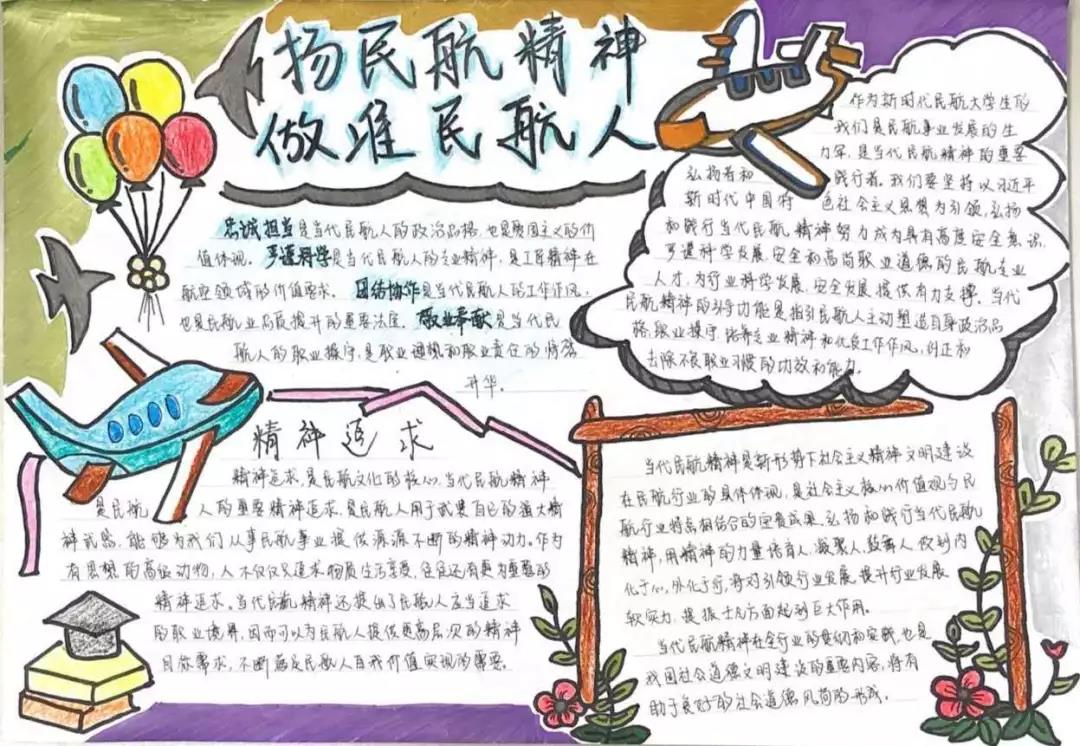 扬民航精神
做准民航人
忠诚担当是当代民航人的政治品格,也是爱国主义的价
值体现。严谨科学是当代民航人的专业精神,是工匠精神在
航空领域的价值要求。团结协作是当代民航人的工作作风,
也是民航业品质提升的重要法宝。敬业奉献是当代民
航人的职业操守,是职业道德和职业责任的情感
升华。
作为新时代民航大学生的
我们是民航事业发展的生
力军,是当代民航精神的重要
弘扬者和践行者。我们要坚持以习近平
新时代中国特色社会主义思想为引领,弘扬
和践行当代民航精神努力成为具有高度安全意识,
严谨科学发展、安全和高尚职业道德的民航专业
人才,为行业科学发展、安全发展提供有力支撑。当代
民航精神的引导功能是指引民航人主动塑造自身政治品
格,职业操守,培养专业精神和优良工作作风,纠正和
去除不良职业习惯的功效和能力。
精神追求
精神追求,是民航文化的核心。当代民航精神
是民航人的重要精神追求,是民航人用于武装自己的强大精
神武器,能够为我们从事民航事业提供源源不断的精神动力。作为
有思想的高级动物,人不仅仅只追求物质生活享受,往往还有更为重要的
精神追求。当代民航精神还提出了民航人应当追求
的职业境界,因而可以为民航人提供更高层次的精神
目标需求,不断满足民航人自我价值实现的需要。
当代民航精神是新形势下社会主义精神文明建设
在民航行业的具体体现,是社会主义核心价值观与民
航行业特点相结合的宝贵成果。弘扬和践行当代民航
精神,用精神的力量培育人,凝聚人,鼓舞人,做到内
化于心,外化于行,将对引领行业发展,提升行业发展
软实力,提振士气方面起到巨大作用。
当代民航精神在全行业的贯彻和实践,也是
我国社会道德文明建设的重要内容,将有
助于良好的社会道德风尚的形成。